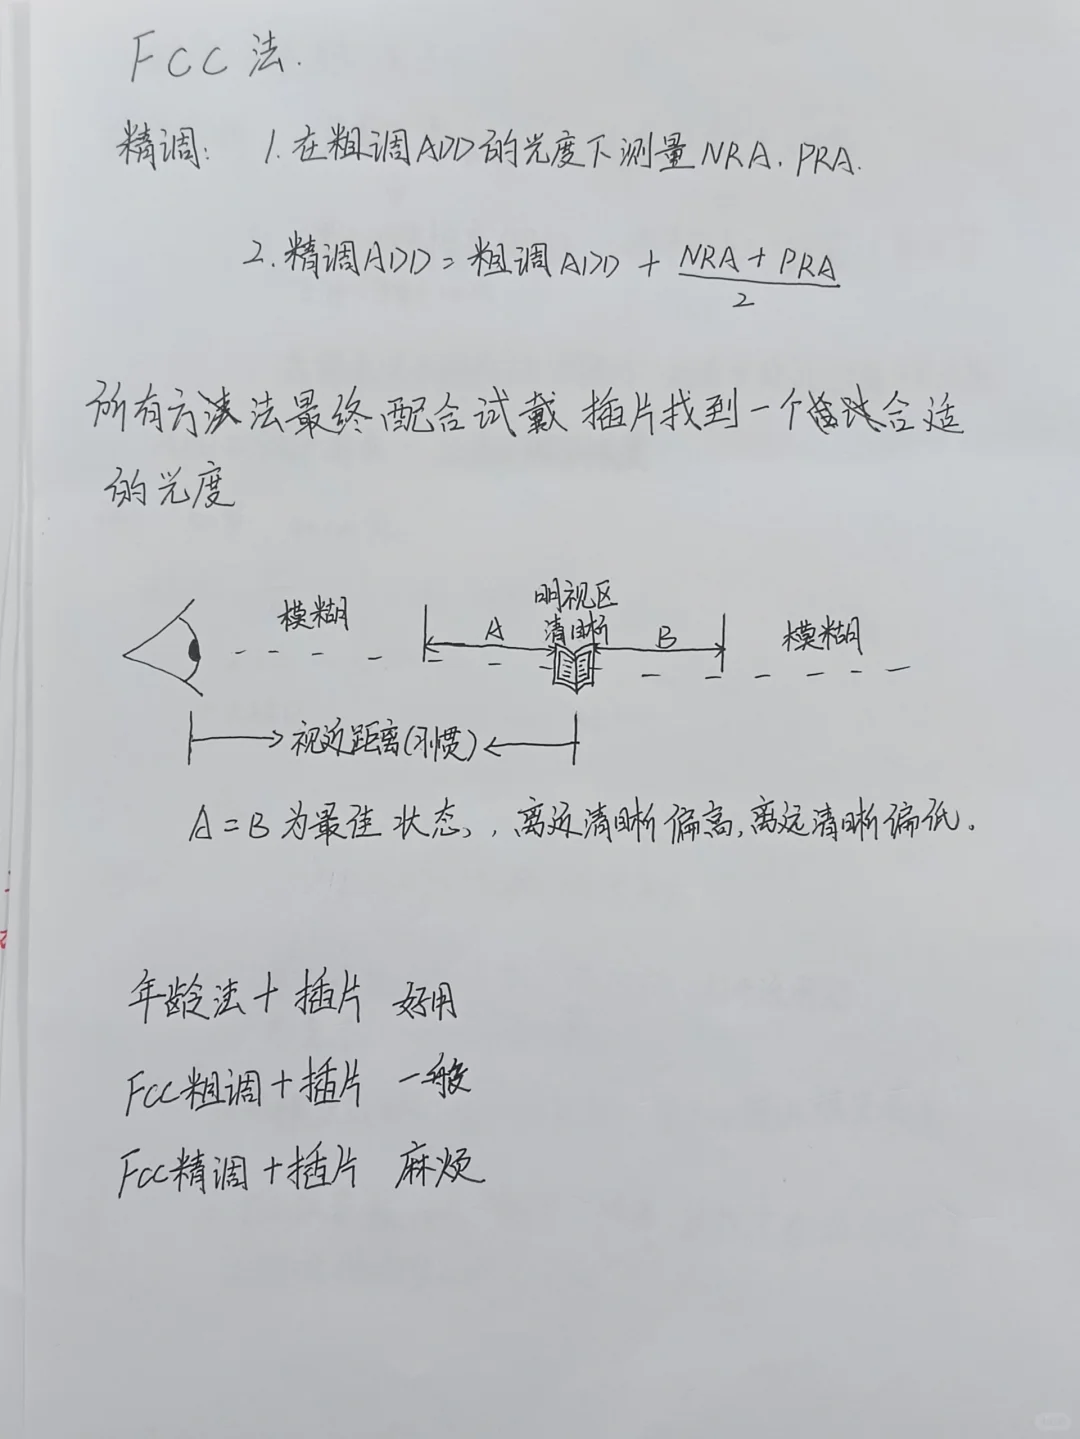 FCC法.
精调: 1.在粗调ADD的光度下测量NRA.PRA.
2.精调ADD=粗调ADD+(NRA+PRA)/2
所有方法最终配合试戴插片找到一个合适
的光度
模糊 A 明视区 清晰 B 模糊
视近距离(习惯)
A=B为最佳状态,,离近清晰偏高,离远清晰偏低。
年龄法+插片 好用
FCC粗调+插片 一般
FCC精调+插片 麻烦